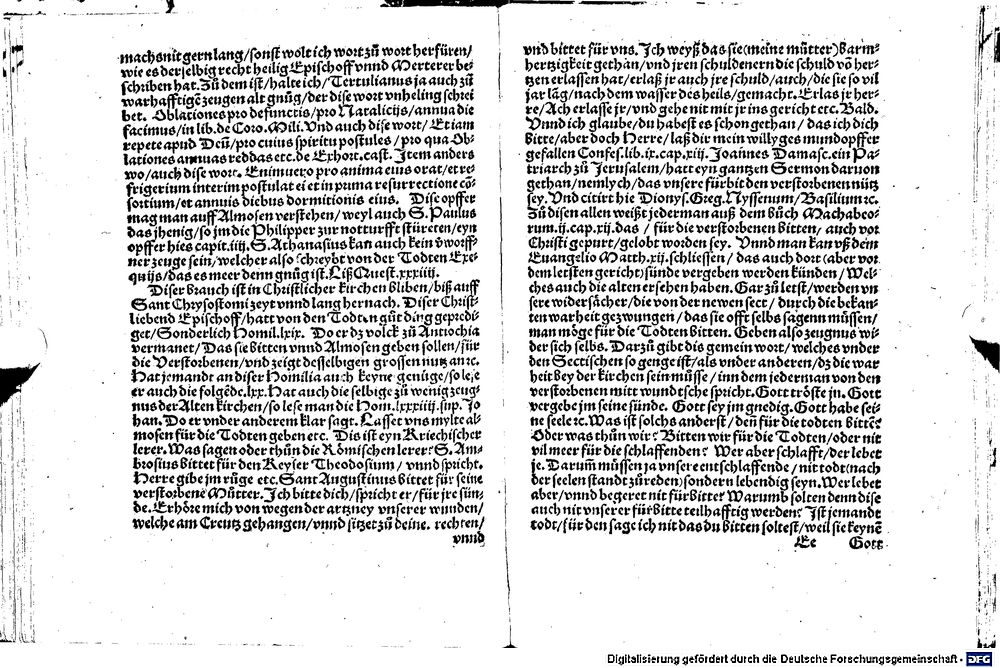 machs nit gern lang/sonst wolt ich wort zů wort herfüren/
wie es derselbig recht heilig Epischoff vnnd Merterer be-
schriben hat. Zů dem ist/halte ich/Tertulianus ja auch zů
warhafftigē zeugen alt gnůg/der dise wort vnheling schrei
bet. Oblationes pro defunctis/pro Natalicijs/annua die
facimus/in lib. de Coro. Mili. Vnd auch dise wort/Etiam
repete apud Deū/pro cuius spiritu postules/pro qua Ob-
lationes annuas reddas etc. de Exhort. cast. Item anders
wo/auch dise wort. Enimuero pro anima eius orat/et re-
frigerium interim postulat ei et in prima resurrectione cō-
sortium/et annuis diebus dormitionis eius. Dise opffer
mag man auff Almosen verstehen/weyl auch S. Paulus
das jhenig/so jm die Philipper zur notturfft stüreten/eyn
opffer hies capit. iiij. S. Athanasius kan auch kein v̄worff-
ner zeuge sein/welcher also schreybt von der Todten Exe-
quijs/das es meer denn gnůg ist. Liß Quest. xxxiiij.
Diser brauch ist in Christlicher kirchen bliben/biß auff
Sant Chrysostomi zeyt vnnd lang hernach. Diser Christ-
liebend Epischoff/hatt von den Todten gůt ding gepredi-
get/Sonderlich Homil. lxix. Do er dz volck zů Antiochia
vermanet/Das sie bitten vnnd Almosen geben sollen/für
die Verstorbenen/vnd zeigt desselbigen grossen nutz an ꝛc.
Hat jemandt an diser Homilia auch keyne genüge/so lese
er auch die folgēde. lxx. Hat auch die selbige zů wenig zeug-
nus der Alten kirchen/so lese man die Hom. lxxxiiij. sup. Jo
han. Do er vnder anderem klar sagt. Lasset vns mylte al-
mosen für die Todten geben etc. Dis ist eyn Kriechischer
lerer. Was sagen oder thůn die Römischen lerer? S. Am-
brosius bittet für den Keyser Theodosium/vnnd spricht.
Herre gibe jm růge etc. Sant Augustinus bittet für seine
verstorbene Můtter. Ich bitte dich/spricht er/für jre sün-
de. Erhöre mich von wegen der artzney vnserer wunden/
welche am Creutz gehangen/vnnd sitzet zů deine. rechten/
vnnd
vnd bittet für vns. Ich weyß das sie (meine můtter) barm-
hertzigkeit gethan/vnd jren schuldenern die schuld vō her-
tzen erlassen hat/erlaß jr auch jre schuld/auch/die sie so vil
jar lāg/nach dem wasser des heils/gemacht. Erlas jr her-
re/Ach erlasse jr/vnd gehe nit mit jr ins gericht etc. Bald.
Vnnd ich glaube/du habest es schon gethan/das ich dich
bitte/aber doch Herre/laß dir mein willyges mundopffer
gefallen Confes. lib. ix. cap. xiij. Joannes Damasc. ein Pa-
triarch zů Jerusalem/hatt eyn gantzen Sermon daruon
gethan/nemlych/das vnsere fürbit den verstorbenen nütz
sey. Vnd citirt hie Dionys. Greg. Nyssenum/Basilium ꝛc.
Zů disen allen weißt jederman auß dem bůch Machabeo-
rum. ij. cap. xij. das/für die verstorbenen bitten/auch vor
Christi gepurt/gelobt worden sey. Vnnd man kan vß dem
Euangelio Matth. xij. schliessen/das auch dort (aber vor
dem letsten gericht) sünde vergeben werden künden/Wel-
ches auch die alten ersehen haben. Gar zů letst/werden vn
sere widersächer/die von der newen sect/durch die bekan-
ten warheit gezwungen/das sie offt selbs sagenn müssen/
man möge für die Todten bitten. Geben also zeugnus wi-
der sich selbs. Darzů gibt dis gemein wort/welches vnder
den Sectischen so genge ist/als vnder anderen/dz die war
heit bey der kirchen sein müsse/inn dem jederman von den
verstorbenen mitt wundtsche spricht. Gott tröste jn. Gott
vergebe jm seine sünde. Gott sey jm gnedig. Gott habe sei-
ne seele ꝛc. Was ist solchs anderst/deñ für die todten bittē?
Oder was thůn wir? Bitten wir für die Todten/oder nit
vil meer für die schlaffenden? Wer aber schlafft/der lebet
je. Darumb müssen ja vnsere entschlaffende/nit todt (nach
der seelen standt zů reden) sondern lebendig seyn. Wer lebet
aber/vnnd begeret nit fürbitte? Warumb solten denn dise
auch nit vnserer fürbitte teilhafftig werden? Ist jemandt
todt/für den sage ich nit das du bitten soltest/weil sie keynē
Ee Gott
Digitalisierung gefördert durch die Deutsche Forschungsgemeinschaft - DFG